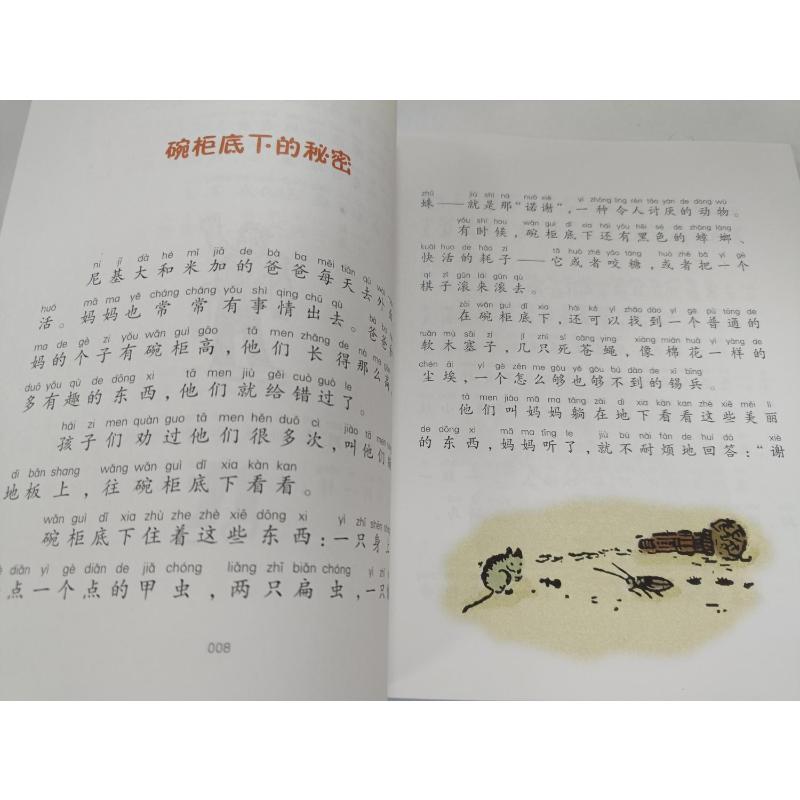 碗柜底下的秘密
ní jī dà hé mǐ jiā de bà ba měi tiān qù wài
尼基大和米加的爸爸每天去外
huó mā ma yě cháng cháng yǒu shì qing chū qù
活。妈妈也常常有事情出去。爸爸
ma de gè zi yǒu wǎn guì gāo tā men zhǎng de nà me
妈的个子有碗柜高，他们长得那么高
duō yǒu qù de dōng xi tā men jiù gěi cuò guò le
多有趣的东西，他们就给错过了。
hái zi men quàn guo tā men hěn duō cì jiào tā men
孩子们劝过他们很多次，叫他们
dì bǎn shang wǎng wǎn guì dǐ xia kàn kan
地板上，往碗柜底下看看。
wǎn guì dǐ xia zhù zhe zhè xiē dōng xi yì zhī shēn shang
碗柜底下住着这些东西：一只身上
diǎn yí gè diǎn de jiǎ chóng liǎng zhī biǎn chóng yì zhī
点一个点的甲虫，两只扁虫，一只
008
zhū jiù shì nà nuò xiè yì zhǒng lìng rén tǎo yàn de dòng wù
蛛——就是那“诺谢”，一种令人讨厌的动物。
yǒu shí hou wǎn guì dǐ xia hái yǒu hēi sè de zhāng láng
有时候，碗柜底下还有黑色的蟑螂、
kuài huo de hào zi tā huò zhě yǎo táng huò zhě bǎ yí gè
快活的耗子——它或者咬糖，或者把一个
qí zǐ gǔn lái gǔn qù
棋子滚来滚去。
zài wǎn guì dǐ xia hái kě yǐ zhǎo dào yí gè pǔ tōng de
在碗柜底下，还可以找到一个普通的
ruǎn mù sāi zi jǐ zhī sǐ cāng ying xiàng mián huā yí yàng de
软木塞子，几只死苍蝇，像棉花一样的
chén āi yí gè zěn me gòu yě gòu bú dào de xī bīng
尘埃，一个怎么够也够不到的锡兵。
tā men jiào mā ma tǎng zài dì xia kàn kan zhè xiē měi lì
他们叫妈妈躺在地下看看这些美丽
de dōng xi mā ma tīng le jiù bú nài fán de huí dá xiè
的东西，妈妈听了，就不耐烦地回答：“谢